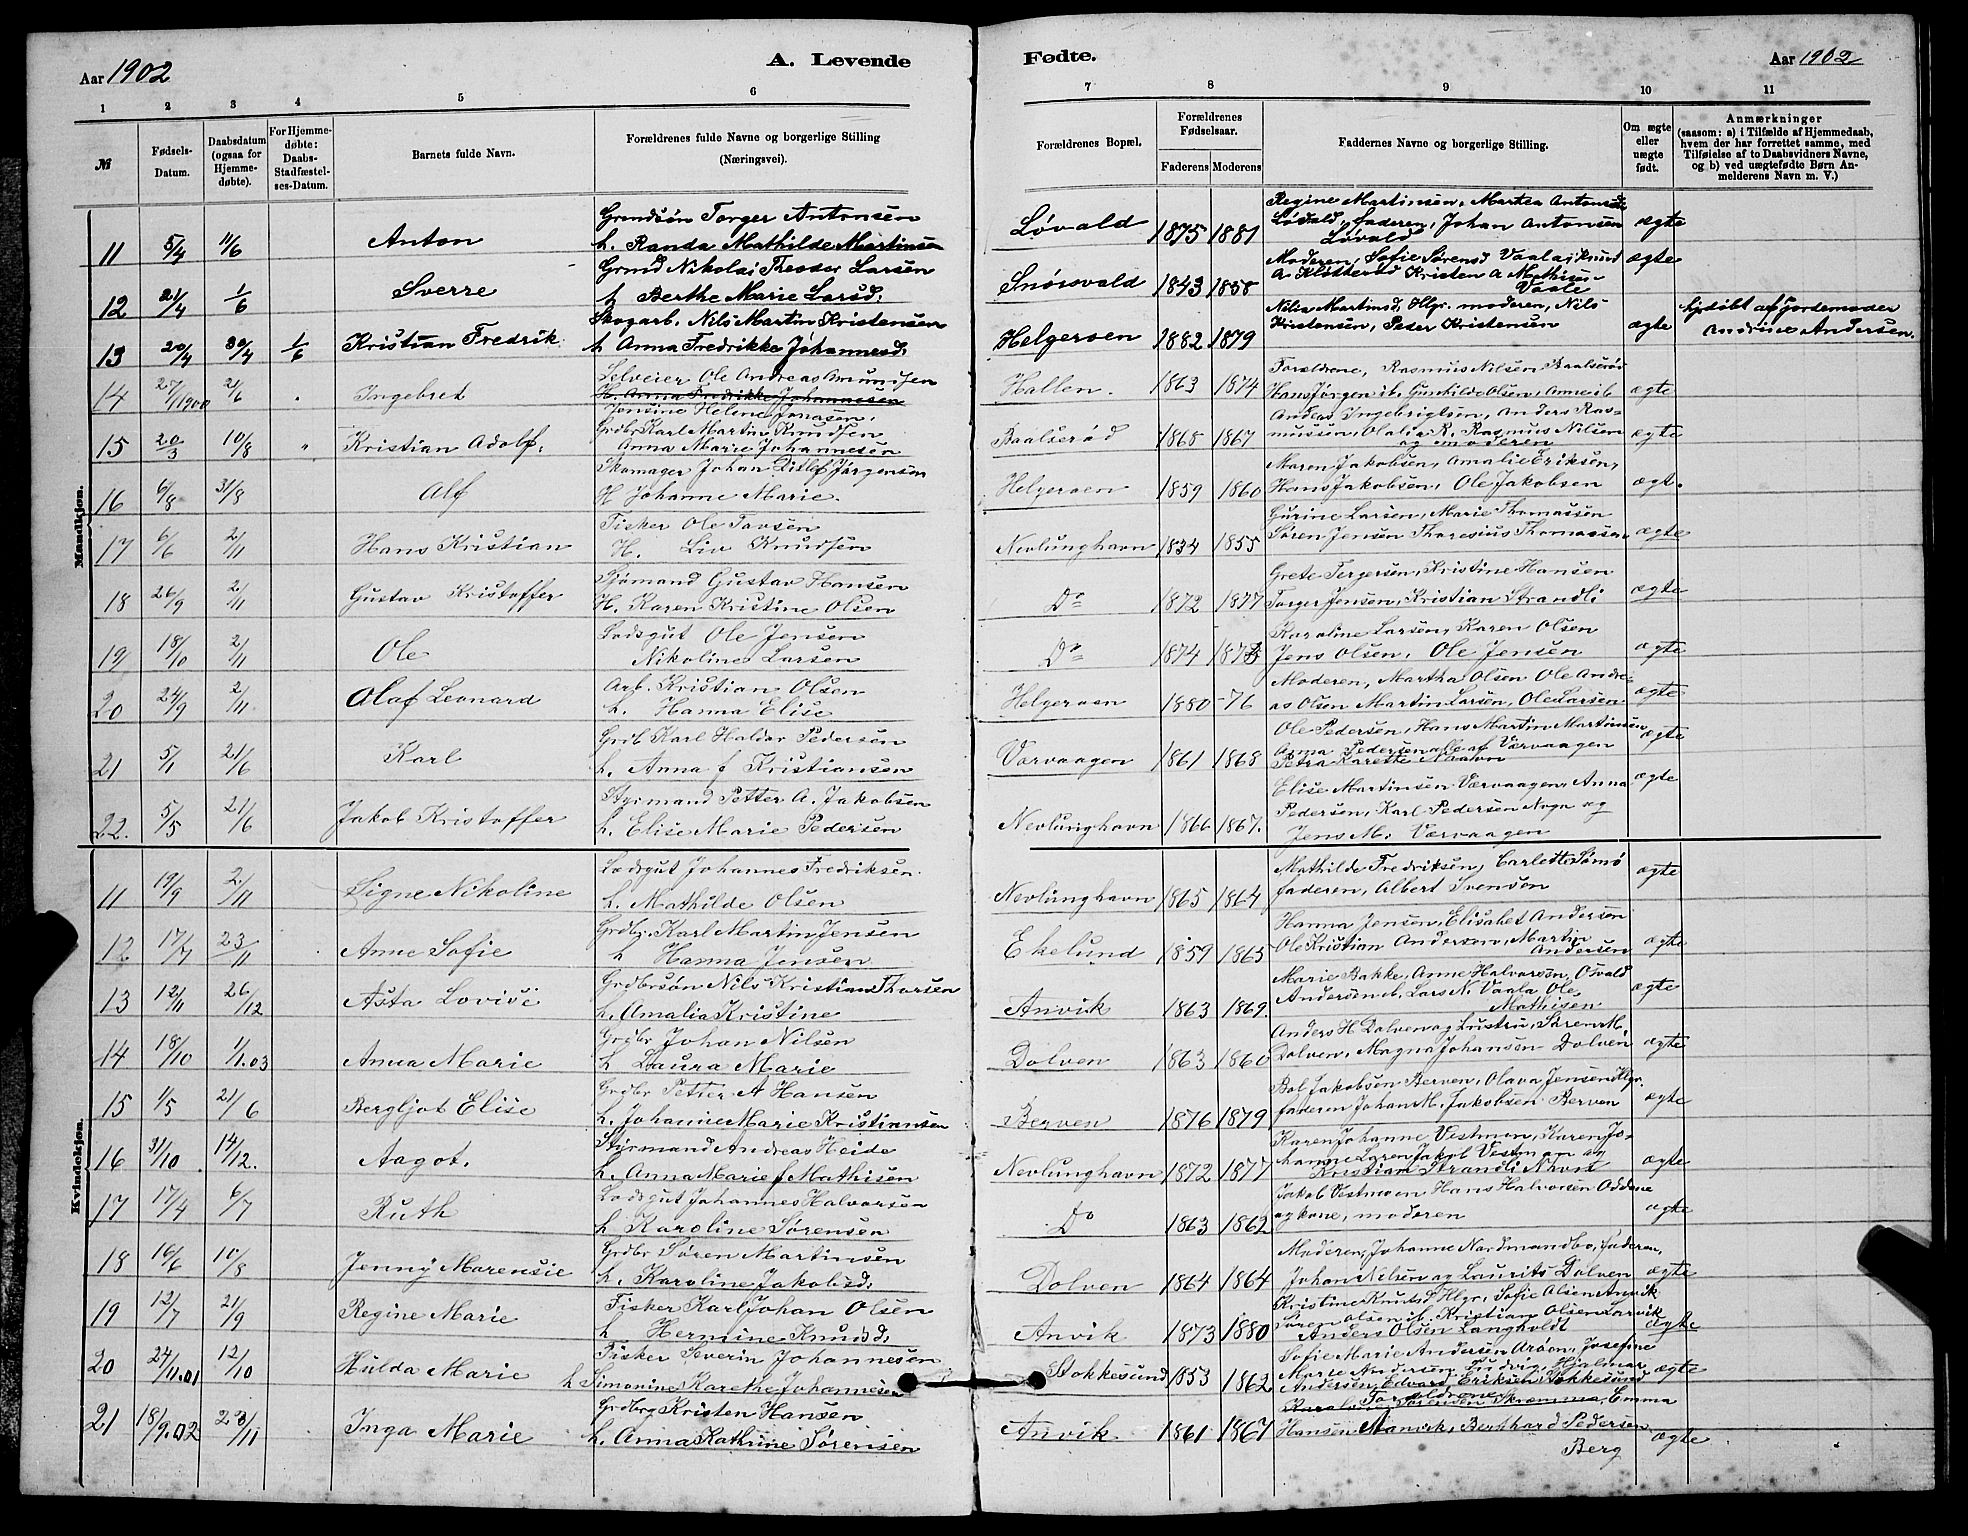 Aar 1902
A. Levende
Fødte.
Aar 1902
1 2 3 4 5 6 7 8 9 10 11
№
Fødsels-Datum.
Daabsdatum (ogsaa for Hjemme-døbte).
For Hjemme-døbte: Daabs-Stadfæstel-ses-Datum.
Barnets fulde Navn.
Forældrenes fulde Navne og borgerlige Stilling (Næringsvei).
Forældrenes Bopæl.
Forældrenes Fødselsaar.
Faderens Moderens
Faddernes Navne og borgerlige Stilling.
Om ægte eller uægte født.
Anmærkninger (saasom: a) i Tilfælde af Hjemmedaab, hvem der har forrettet samme, med Tilføielse af to Daabsvidners Navne, og b) ved uægtefødte Børn An-melderens Navn m. V.)
Mandkjøn.
Grmdsøn Torger Antonsen Regine Martinsen, Martea Antonsd
11 5/4 11/6 Anton h. Randa Mathilde Martinsen Løvald 1875 1881 Løvald, faderen, Johan Antonsen ægte
Løvald
Grmd Nikolai Theodor Larsen Moderen, Sofie Sørensd Vaala, Knud
12 21/4 1/6 Sverre h Berthe Marie Larsd. Snørsvald 1843 1858 A Kløtterød Kristen A Mathisen ægte
Vaale
Skogarb. Nils Martin Kristensen Nilia Martinsd, Hlgr. moderen, Nils hjdøbt af Jordemoder
13 20/4 30/4 1/6 Kristian Fredrik h Anna Fredrikke Johannesd. Helgeroen 1882 1879 Kristensen, Peder Kristensen ægte Andrine Andersen.
Selveier Ole Andreas Amundsen Forældrene, Rasmus Nilsen Baalsrød
14 27/1 1900 21/6 Ingebret H. Anna Fredrikke Johannesen Hallen. 1863 1874 Hans Jørgen ib. Gunhilde Olsen, Anne ib ægte
Jensine Helene Jonasen. Andreas Ingebrigtsen, Anders Ras-
15 20/3 10/8 Kristian Adolf. Grdbr Karl Martin Knudsen Baalserød 1868 1867 mussen, Olalia R. Rasmus Nilsen ægte
Anna Marie Johannesen og moderen
Skomager Johan Ditlef Jørgensen Maren Jakobsen, Amalie Eriksen,
16 6/8 31/8 Alf H Johanne Marie. Helgeroen 1859 1860 Hans Jakobsen, Ole Jakobsen ægt.
Fisker Ole Tovsen Gurine Larsen, Marie Thomassen
17 6/6 2/11 Hans Kristian H. Liv Knudsen Nevlunghavn 1834 1855 Søren Jensen Tharesius Thomassen ægte
Sjømand Gustav Hansen Grete Tergersen, Kristine Hansen
18 26/9 2/11 Gustav Kristoffer H. Karen Kristine Olsen Do 1872 1877 Torger Jensen, Kristian Strandli ægte
Lodsgut Ole Jensen Karoline Larsen, Karen Olsen
19 18/10 2/11 Ole Nikoline Larsen Do 1874 Jens Olsen, Ole Jensen ægte
Arb. Kristian Olsen Moderen, Martha Olsen Ole Andre-
20 24/9 2/11 Olaf Leonard h. Hanna Elise Helgeroen 1880 -76 as Olsen Martin Larsen, Ole Larsen ægte
Grdb Karl Haldor Pedersen Ole Pedersen, Hans Martin Martinsen
21 5/1 21/6 Karl h. Anna f Kristiansen Værvaagen 1861 1868 Anna Pedersen alle af Værvaagen ægte
Petra Karethe Naavn
Styrmand Petter A. Jakobsen Elise Martinsen Værvaagen, Anna
22. 5/5 21/6 Jakob Kristoffer h. Elise Marie Pedersen Nevlunghavn 1866 1867. Pedersen, Karl Pedersen Nvgn og ægte
Jens M. Værvaagen
Kvindekjøn.
Lodsgut Johannes Fredriksen. Mathilde Fredriksen, Carlotte Sømø
11 19/9 2/11 Signe Nikoline h. Mathilde Olsen Nevlunghavn 1865 1864 faderen, Albert Svendsen ægte
Grdbr. Karl Martin Jensen Hanna Jensen, Elisabet Andersen
12 17/7 23/11 Anne Sofie h Hanna Jensen Ekelund 1859 1865 Ole Kristian Andersen, Martin ægte
Andersen
Grdbrsøn Nils Kristian Thorsen Marie Bakke, Anne Halvorsen, Osvald
13 12/11 26/12 Asta Lovise h. Amalia Kristine Anvik 1863 1869. Andersen ib, Lars N. Vaala Ole ægte
Mathisen
Grdbr Johan Nilsen Anders H Dolven og hustru, Søren M.
14 18/10 1/1.03 Anna Marie h Laura Marie Dolven 1863 1860 Dolven, Magna Johansen Dolven ægte
Grdbr Petter A Hansen Bol Jakobsen Berven, Olava Jensen Hlgr.
15 1/5 21/6 Bergljot Elise h. Johanne Marie Kristiansen Berven 1876 1879 faderen Johan M. Jakobsen Berven ægte
Styrmand Andreas Heide Karen Johanne Vestmoen, Karen Jo-
16 31/10 14/12. Aagot. h. Anna Marie f Mathisen Nevlunghavn 1872 1877 hanne Loren Jakob Vestman og ægte
Kristian Strandli Nhvn
Lodsgut Johannes Halvorsen Jakob Vestmoen Hans Halvorsen Oddane
17 17/4 6/7 Ruth h Karoline Sørensen Do 1863 1862 og kone, moderen ægte
Grdbr Søren Martinsen Moderen, Johanne Nordmandbo, faderen,
18 16/6 10/8 Jenny Marensie h. Karoline Jakobsd. Dolven 1864 1864 Johan Nilsen og Laurits Dolven ægte
Fisker Karl Johan Olsen Kristine Knutsd Hlgr, Sofie Olsen Anvik
19 12/7 21/9 Regine Marie h Hermine Knudsd. Anvik 1873 1880 Søren Olsen ib. Kristian Olsen Larvik ægte
Anders Olsen Langholdt
Fisker Severin Johannesen Sofie Marie Andersen Arøen, Josefine
20 24/11.01 12/10 Hulda Marie h Simonine Karethe Johannesen Stokkesund 1853 1862 Marie Andersen, Ludvig Hjalmar ægte
Andersen, Edvard Eriksen Stokkesund
Forældrene
Grdbrg Kristen Hansen Sørensen Emma
21 18/9.02 23/11 Inga Marie h. Anna Kathrine Sørensen Anvik 1861 1867 Hansen Manvik, Bernhard Pedersen ægte
Berg